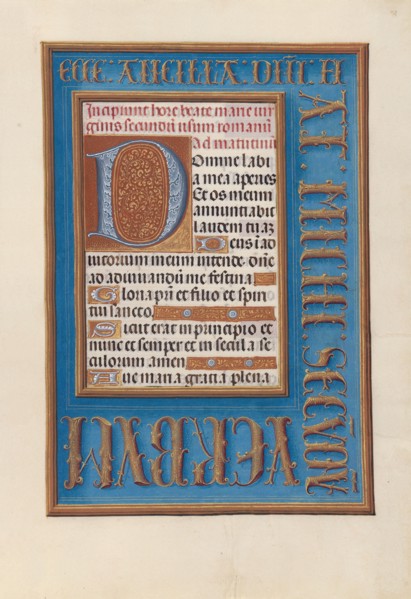 ECCE. ANCILLA. DIÑI. FI
AT. MICHI. SECVDV̄
VERBVM
Incipiunt hore beate marie vir
ginis secundū usum romanū
Ad matutinū
Domine labi
a mea aperies
Et os meum
annunciabit
laudem tuaʒ
Deus ī ad
iutorium meum intende. Dñe
ad adiuuandū me festina
Gloria pr̄i et filio et spiri
tui sancto.
Sicut erat in principio et
nunc et semper et in secula se
culorum amen
Aue maria gratia plena